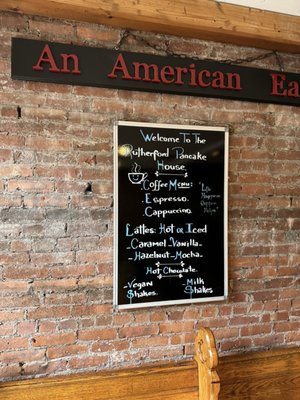 An American Ea
Welcome To The
Rutherford Pancake
House.
Coffee Menu:
Espresso.
Cappuccino.
"Life
Happens
Coffee
Helps"
Lattes: Hot or Iced
-Caramel -Vanilla-
-Hazelnut -Mocha-
Hot Chocolate.
-Vegan
Shakes-
-Milk
Shakes-